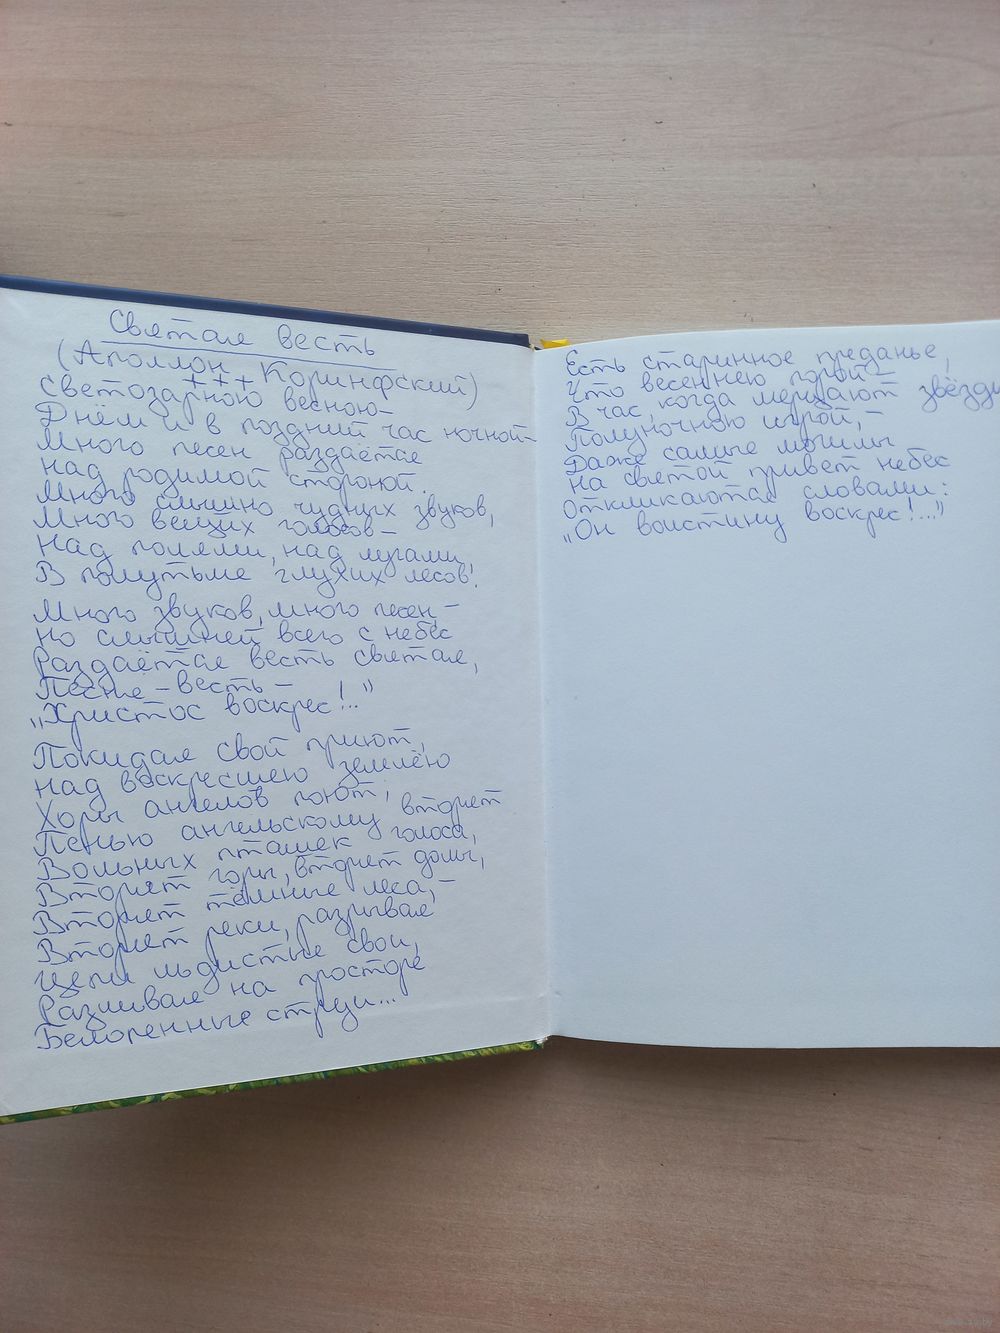 Святая весть
(Аполлон Коринфский)
+++
Светозарною весною–
Днём и в поздний час ночной–
Много песен раздаётся
над родимой стороной.
Много слышно чудных звуков,
Много вещих голосов–
Над полями, над лугами,
В полутьме глухих лесов.
Много звуков, много песен,–
но слышней всего с небес
Раздаётся весть святая,
Песня–весть–
„Христос воскрес!.."
Покидая свой приют,
над воскресшею землёю
Хоры ангелов поют;
Пенью ангельскому вторят
Вольных пташек голоса,
Вторят горы, вторят долы,
Вторят тёмные леса,–
Вторят реки, разрывая
цепи льдистые свои,
Разливая на просторе
Белопенные струи...
Есть старинное преданье,
Что весеннею порой–
В час, когда мерцают звёзды
Полуночною игрой,–
Даже самые могилы
на святой привет небес
Откликаются словами:
„Он воистину воскрес!..."